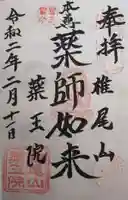 奉拝
椎尾山
本尊
薬師如来
薬王院
令和二年二月十一日